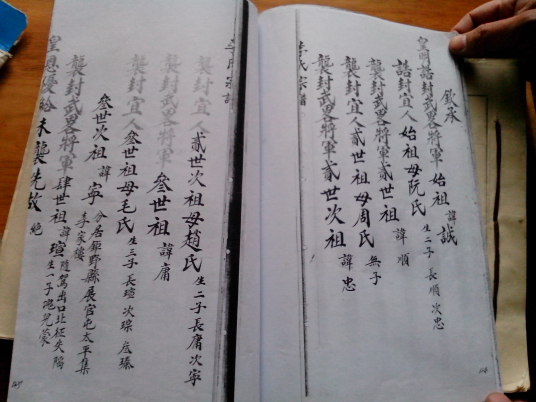 欽承
皇明誥封武畧將軍 始祖 諱誠
誥封宜人 始祖母阮氏 生二子 長順次忠
襲封武畧將軍 貳世祖 諱順
襲封宜人 貳世祖母周氏 無子
襲封武畧將軍 貳世次祖 諱忠
李氏宗譜
李氏宗譜
襲封宜人 貳世次祖母趙氏 生二子長庸次寧
襲封武畧將軍 叁世祖 諱庸
襲封宜人 叁世祖母毛氏 生三子長瑄次琛
叁世次祖 諱寧 分居鉅野縣展官屯太平集
李家樓
襲封武畧將軍 肆世祖 諱瑄 隨駕出口北征失陷
生一子 兒蒙
皇恩優給 未襲先故 絕